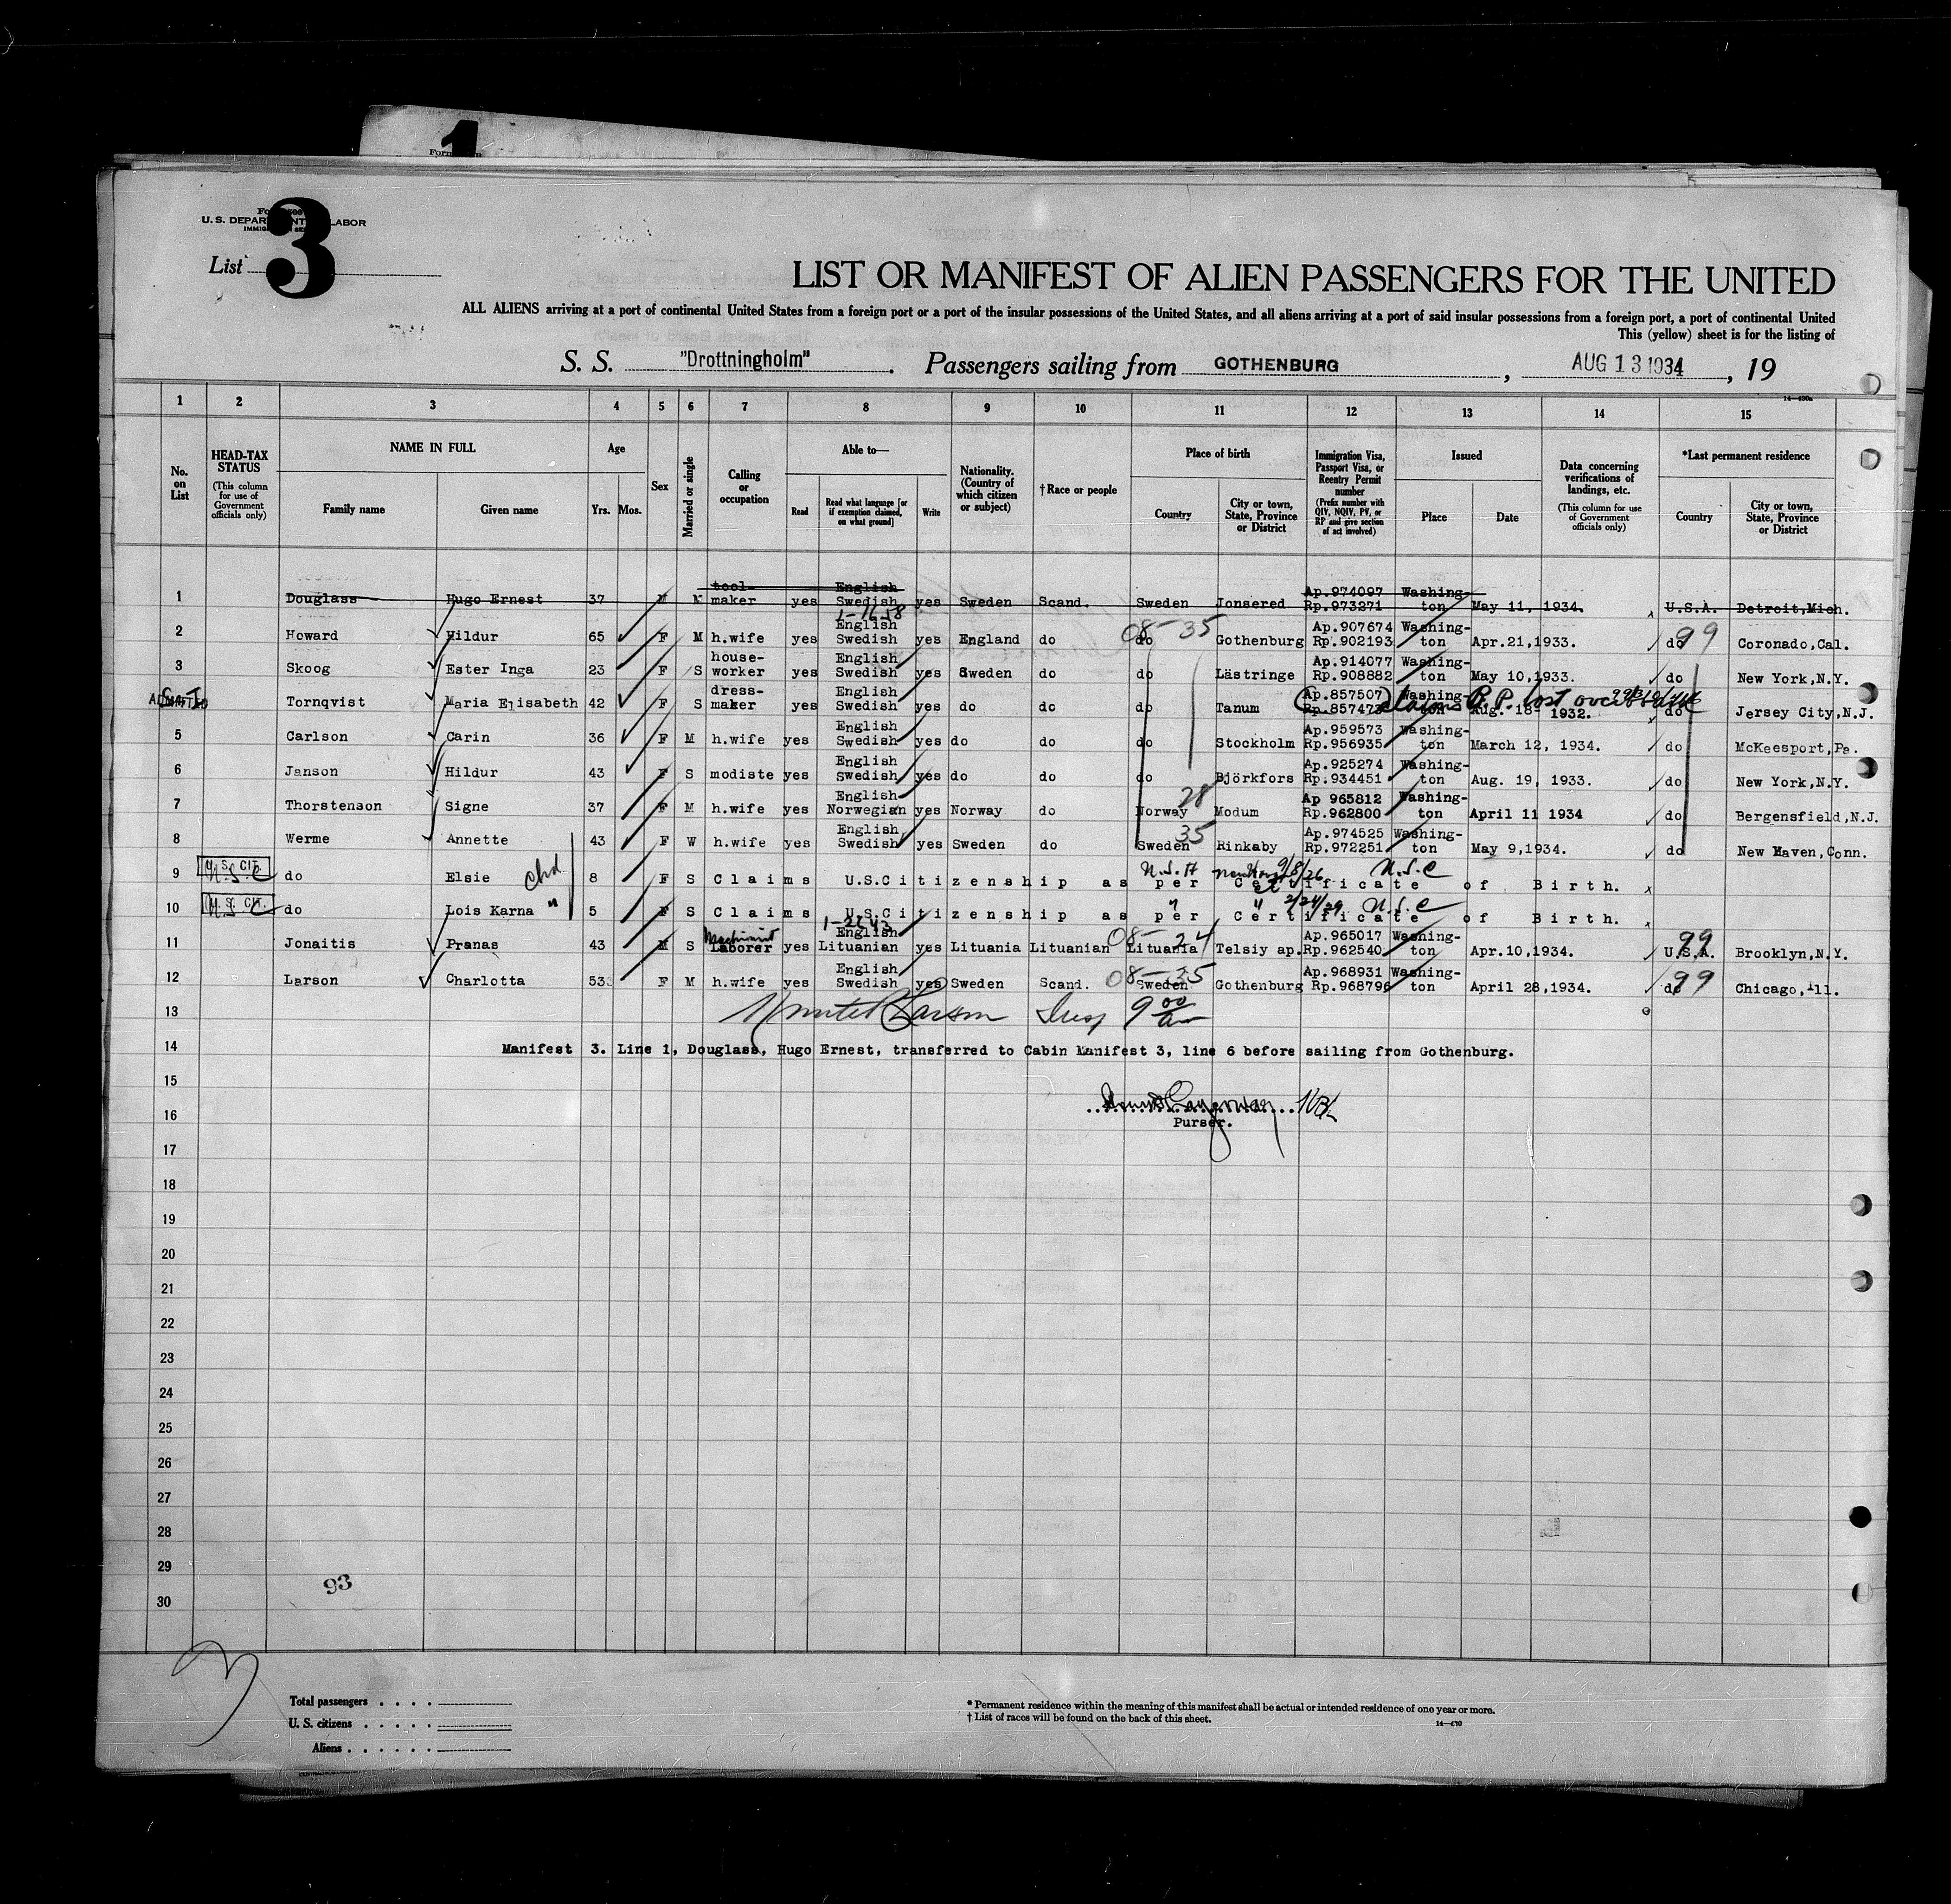 1
3
U. S. DEPARTMENT LABOR
List
LIST OR MANIFEST OF ALIEN PASSENGERS FOR THE UNITED
ALL ALIENS arriving at a port of continental United States from a foreign port or a port of the insular possessions of the United States, and all aliens arriving at a port of said insular possessions from a foreign port, a port of continental United
This (yellow) sheet is for the listing of
S. S. "Drottningholm". Passengers sailing from GOTHENBURG, AUG 13 1934, 19
1 2 3 4 5 6 7 8 9 10 11 12 13 14 15
No. on List
HEAD-TAX STATUS (This column for use of Government officials only)
NAME IN FULL
Family name Given name
Age
Yrs. Mos.
Sex
Married or single
Calling or occupation
Able to—
Read
Read what language [or if exemption claimed, on what ground]
Write
Nationality. (Country of which citizen or subject)
†Race or people
Place of birth
Country
City or town, State, Province or District
Immigration Visa, Passport Visa, or Reentry Permit number (Prefix number with QIV, NQIV, PV, or RP and give section of act involved)
Issued
Place Date
Data concerning verifications of landings, etc. (This column for use of Government officials only)
*Last permanent residence
Country
City or town, State, Province or District
1 Douglass Hugo Ernest 37 M M tool-maker yes English Swedish yes Sweden Scand. Sweden Jonsered Ap.974097 Rp.973271 Washing-ton May 11, 1934. U.S.A. Detroit,Mich.
2 Howard Hildur 65 F M h.wife yes English Swedish yes England do do Gothenburg Ap.907674 Rp.902193 Washing-ton Apr.21,1933. do 99 Coronado,Cal.
3 Skoog Ester Inga 23 F S house-worker yes English Swedish yes Sweden do do Lästringe Ap.914077 Rp.908882 Washing-ton May 10,1933. do New York,N.Y.
ADMITTED Tornqvist Maria Elisabeth 42 F S dress-maker yes English Swedish yes do do do Tanum Ap.857507 Rp.857473 Washing-ton Aug. 18- 1932. claims R.P. lost do Jersey City,N.J.
5 Carlson Carin 36 F M h.wife yes English Swedish yes do do do Stockholm Ap.959573 Rp.956935 Washing-ton March 12, 1934. do McKeesport,Pa.
6 Janson Hildur 43 F S modiste yes English Swedish yes do do do Björkfors Ap.925274 Rp.934451 Washing-ton Aug. 19, 1933. do New York,N.Y.
7 Thorstenson Signe 37 F M h.wife yes English Norwegian yes Norway do Norway 28 Modum Ap 965812 Rp.962800 Washing-ton April 11 1934 do Bergensfield,N.J.
8 Werme Annette 43 F W h.wife yes English Swedish yes Sweden do Sweden 35 Rinkaby Ap.974525 Rp.972251 Washing-ton May 9,1934. do New Haven,Conn.
9 U.S. CIT. do Elsie chd 8 F S Claims U.S.Citizenship as per Certificate of Birth. 9/8/26 U.S.C
10 U.S. CIT. do Lois Karna " 5 F S Claims U.S.Citizenship as per Certificate of Birth. 2/24/29 U.S.C
11 Jonaitis Pranas 43 M S Machinist Laborer yes English Lituanian yes Lituania Lituanian Lituania 08-24 Telsiy ap. Ap.965017 Rp.962540 Washing-ton Apr.10,1934. U.S.A. 99 Brooklyn,N.Y.
12 Larson Charlotta 53 F M h.wife yes English Swedish yes Sweden Scand. Sweden 08-35 Gothenburg Ap.968931 Rp.968796 Washing-ton April 28,1934. do 99 Chicago,Ill.
13 Larson Insp 9 00
14 Manifest 3. Line 1, Douglass, Hugo Ernest, transferred to Cabin Manifest 3, line 6 before sailing from Gothenburg.
15
16
Purser.
17
18
19
20
21
22
23
24
25
26
27
28
29
93
30
Total passengers . . . .
U. S. citizens . . . . .
Aliens . . . . . .
* Permanent residence within the meaning of this manifest shall be actual or intended residence of one year or more.
† List of races will be found on the back of this sheet.
14—430